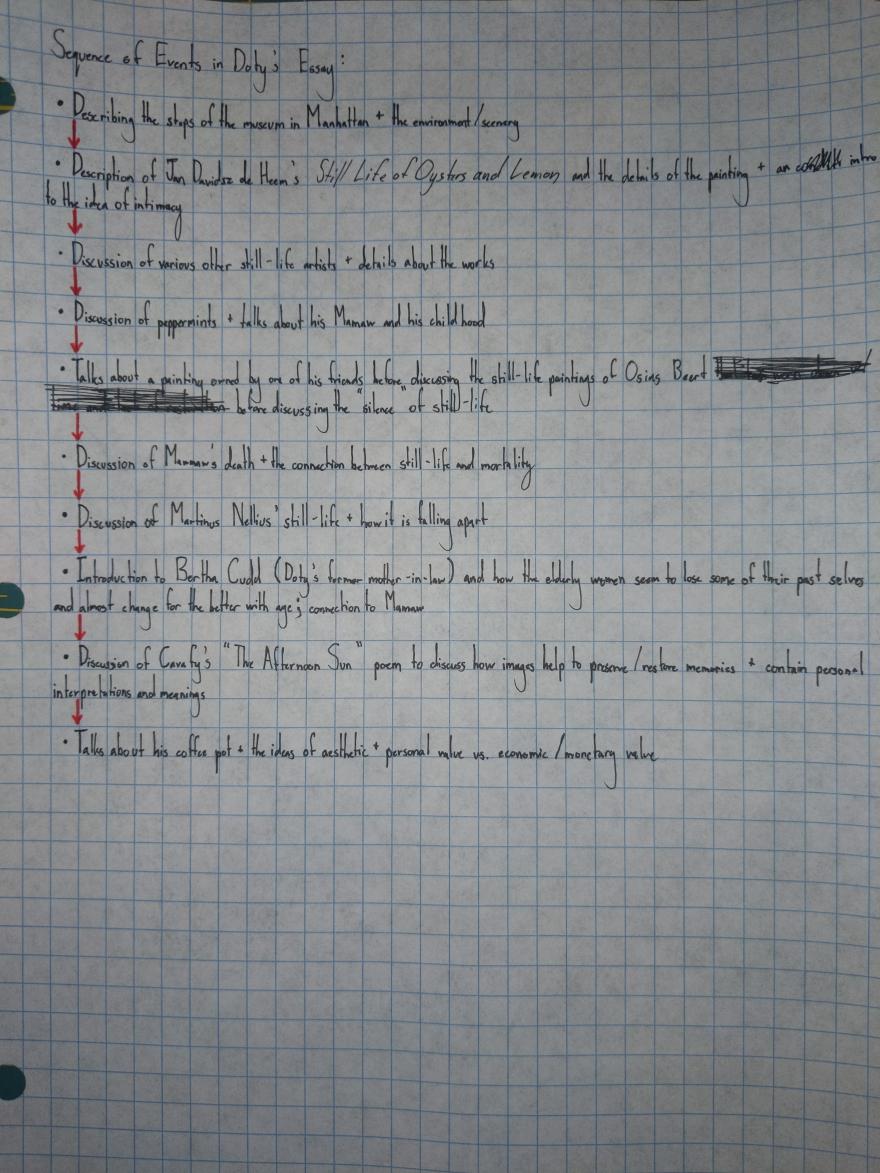 Sequence of Events in Doty's Essay:
• Describing the steps of the museum in Manhattan + the environment/scenery
• Description of Jan Davidsz de Heem's Still Life of Oysters and Lemon and the details of the painting + an intro
to the idea of intimacy
• Discussion of various other still-life artists + details about the works
• Discussion of peppermints + talks about his Mamaw and his childhood
• Talks about a painting owned by one of his friends before discussing the still-life paintings of Osias Beert
before discussing the "silence" of still-life
• Discussion of Mamaw's death + the connection between still-life and mortality
• Discussion of Martinus Nellius' still-life + how it is falling apart
• Introduction to Bertha Cudd (Doty's former mother-in-law) and how the elderly women seem to lose some of their past selves
and almost change for the better with age; connection to Mamaw
• Discussion of Cavafy's "The Afternoon Sun" poem to discuss how images help to preserve/restore memories + contain personal
interpretations and meanings
• Talks about his coffee pot + the ideas of aesthetic + personal value vs. economic/monetary value